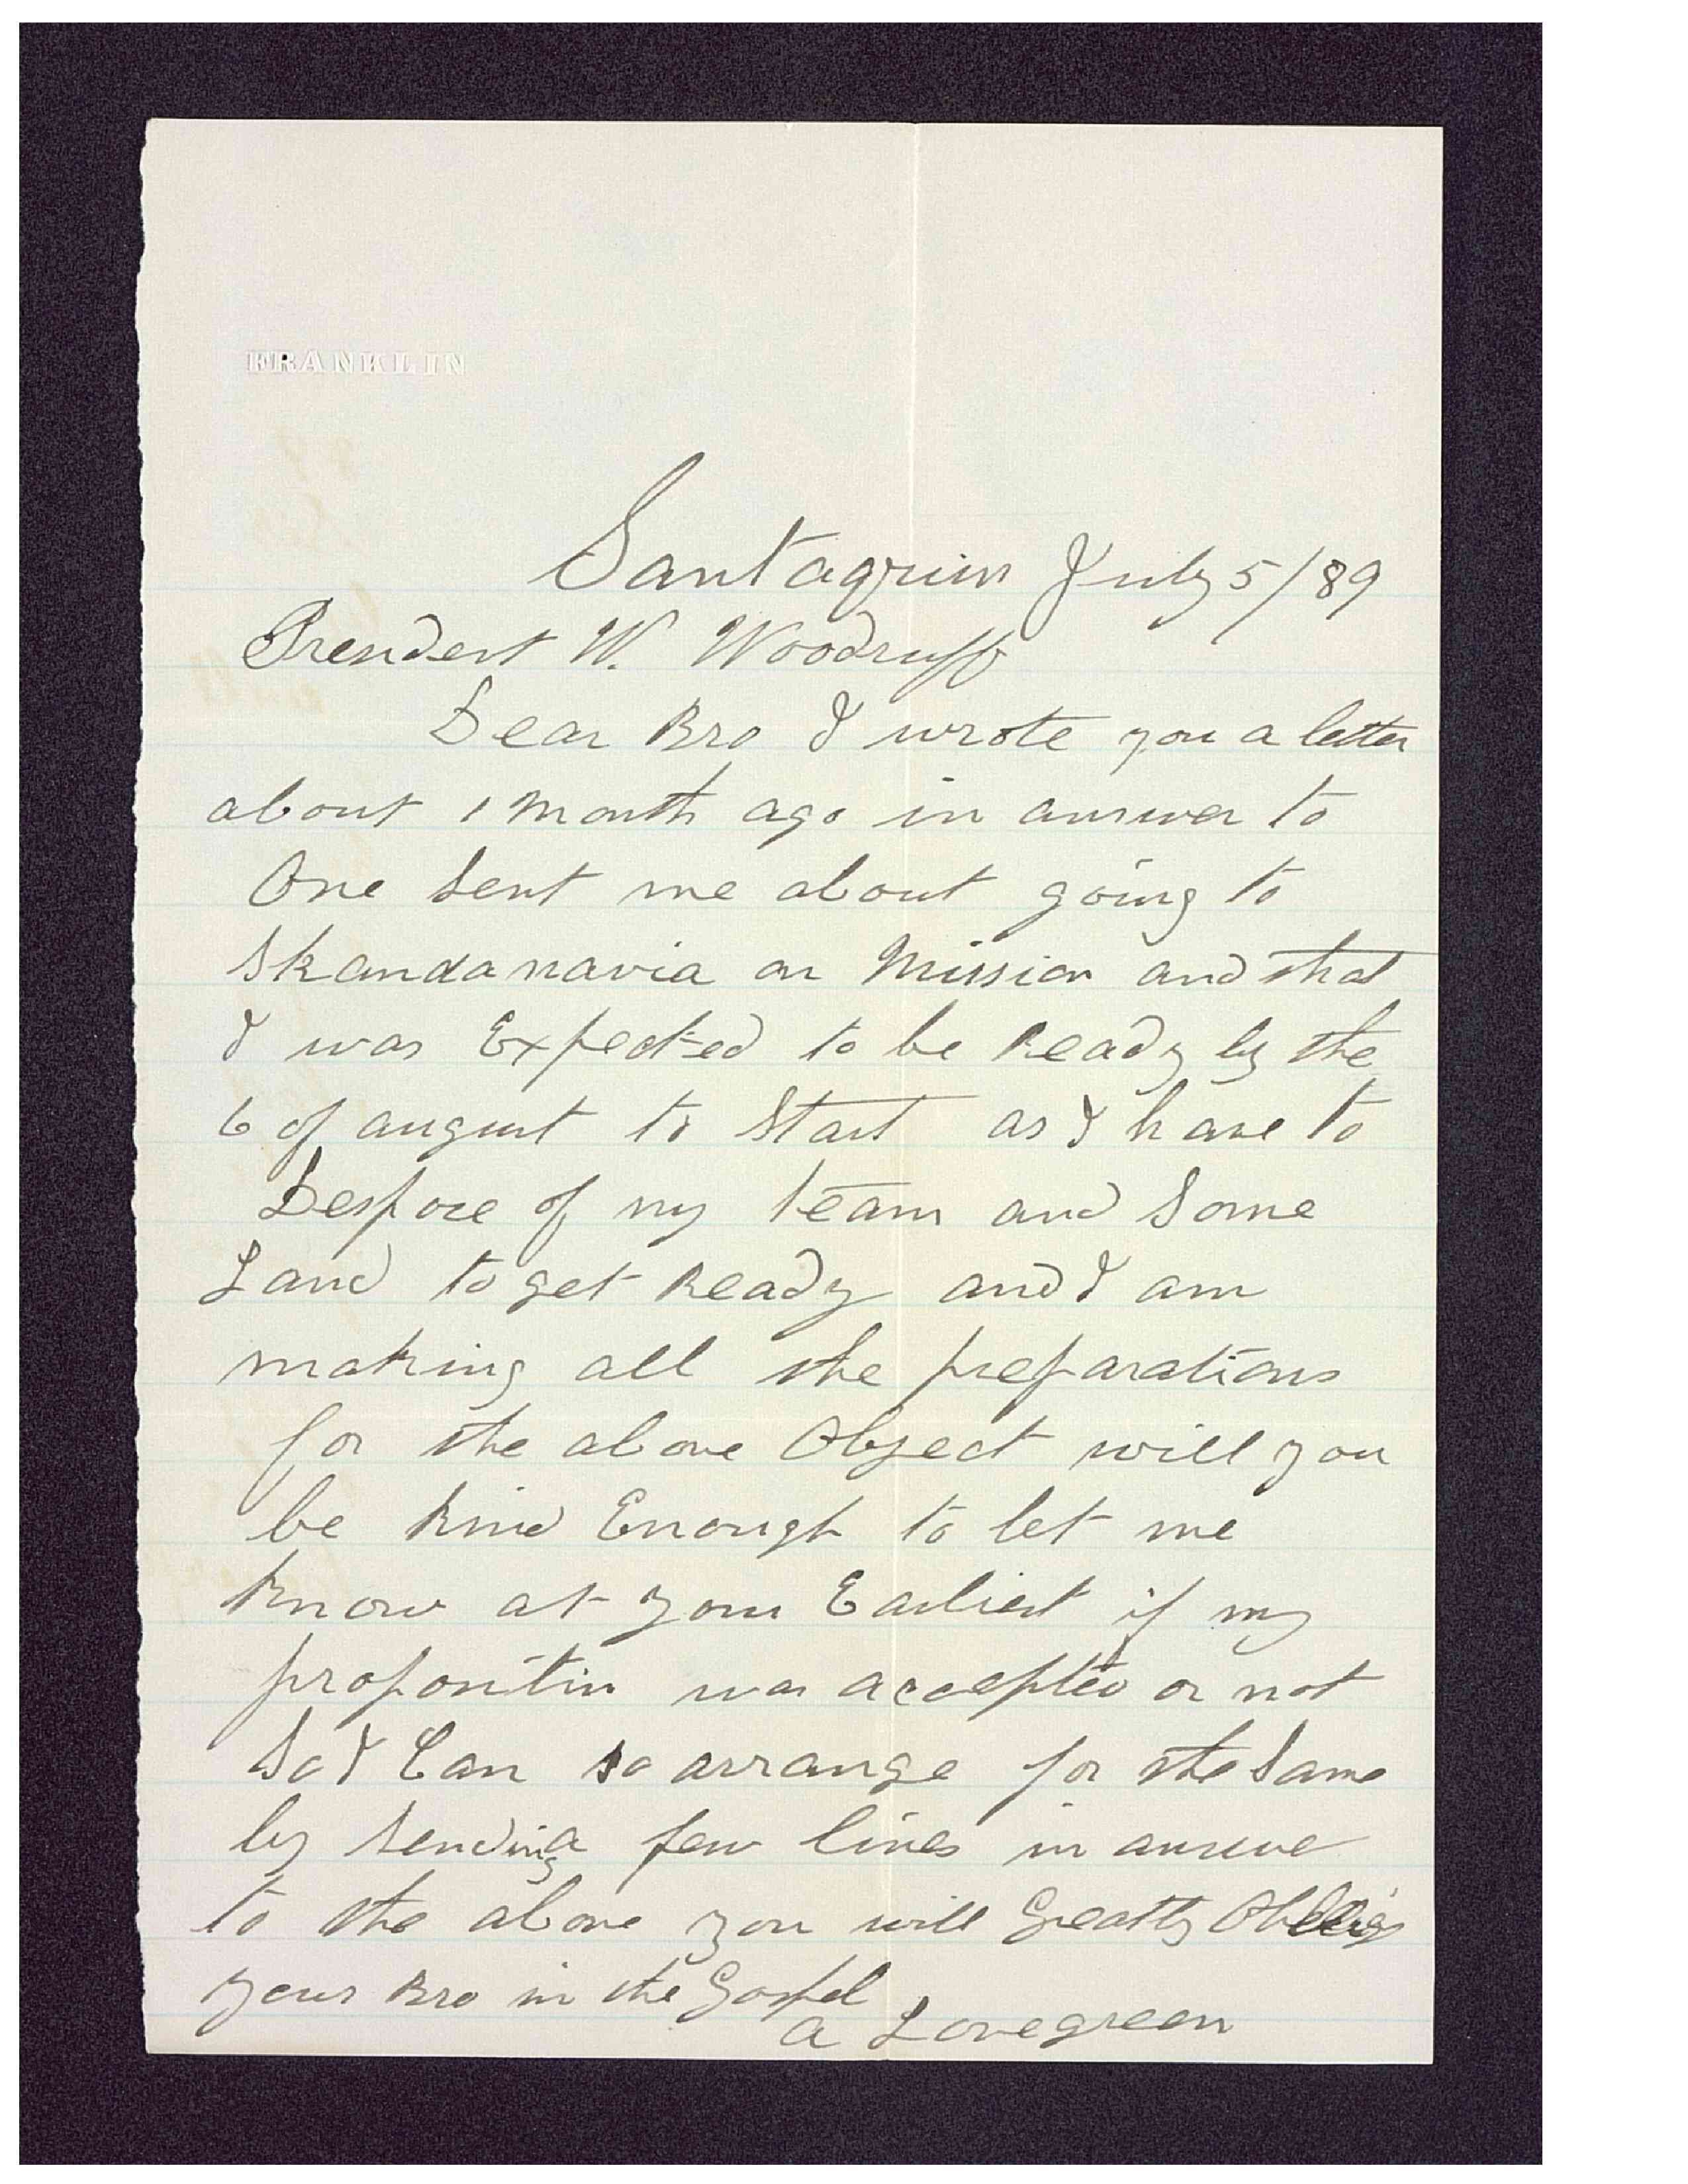 FRANKLIN
Santaquin July 5/89
President W. Woodruff
Dear Bro I wrote you a letter
about 1 Month ago in answer to
One Sent me about going to
Skandanavia on Mission and that
I was Expected to be Ready by the
6 of august to Start as I have to
Despose of my team and Some
Land to get Ready and I am
making all the preparations
for the above Object will you
be kind Enough to let me
know at your Earliest if my
proposition was accepted or not
So I Can so arrange for the Same
by Sending a few lines in answer
to the above you will Greatly
your Bro in the Gospel
a Lovegreen